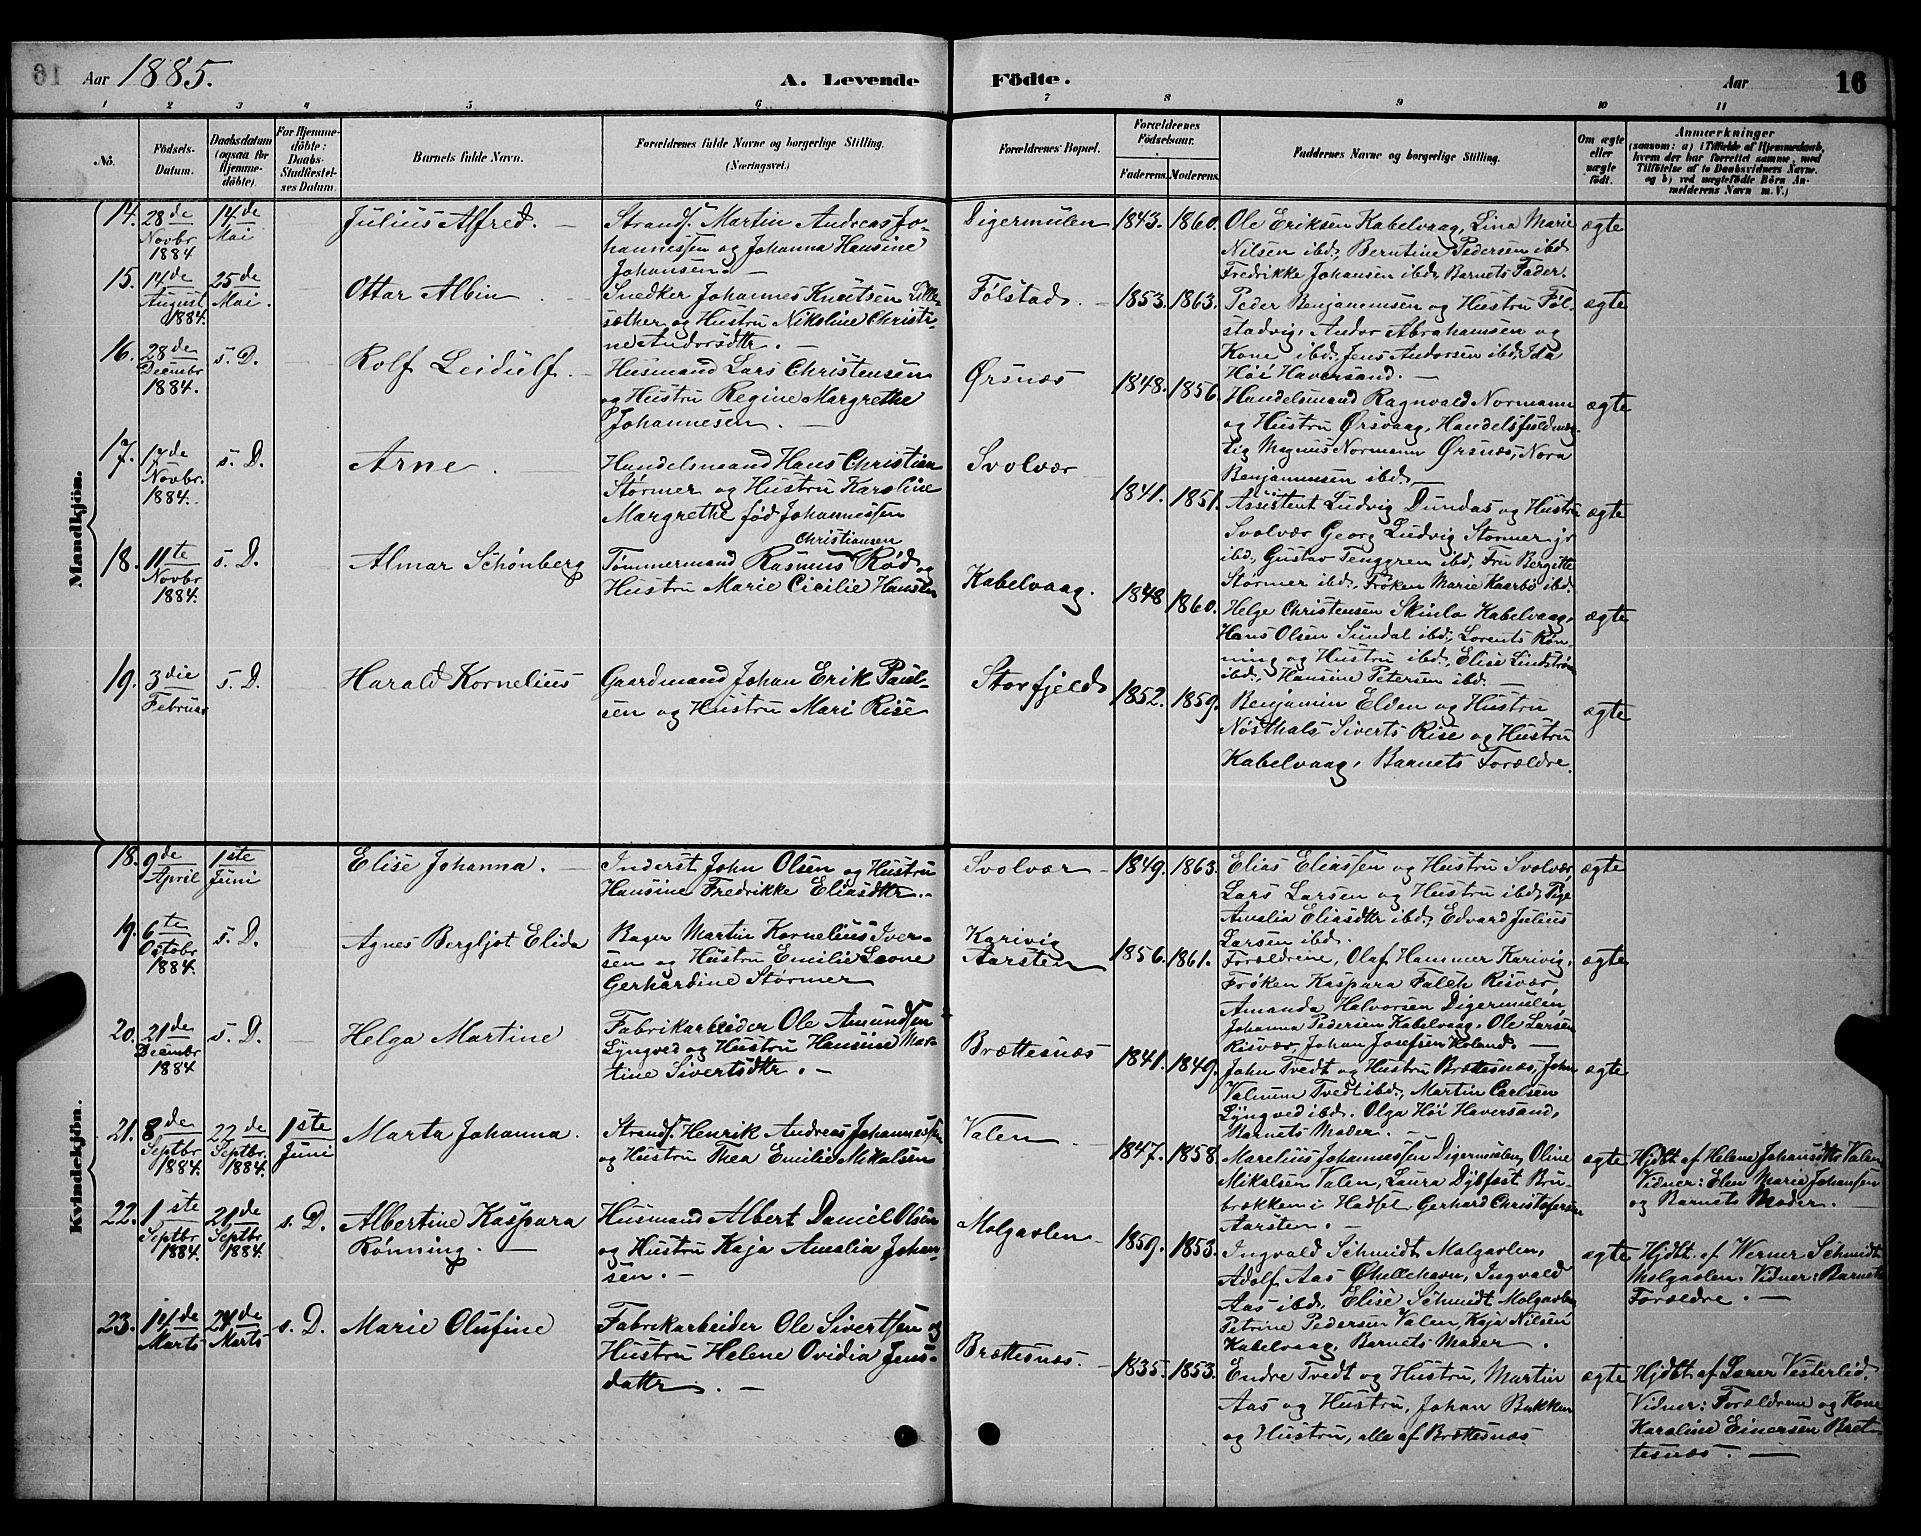 Aar 1885. A. Levende Födte. Aar 16
1 2 3 4 5 6 7 8 9 10 11
No. Födsels-Datum. Daabsdatum (ogsaa for Hjemme-döbte) For Hjemme-döbte: Daabs-Stadfæstel-ses Datum. Barnets fulde Navn. Forældrenes fulde Navne og borgerlige Stilling. (Næringsvei.) Forældrenes Bopæl. Forældrenes Födselsaar. Faderens. Moderens. Faddernes Navne og borgerlige Stilling. Om ægte eller uægte født. Anmærkninger (saasom: a) i Tilfælde af Hjemmedaab, hvem der har forrettet samme, med Tilföielse af to Daabsvidners Navne, og b) ved uægtefödte Börn An-melderens Navn m. V.)
Mandkjön.
14. 28de Novbr 1884 14de Mai
Julius Alfred. –
Strands. Martin Andreas Jo-
hannessen og Johanna Hansine
Johansen. –
Digermulen 1843. 1860.
Ole Eriksen Kabelvaag, Lina Marie
Nilsen ibd., Berntine Pedersen ibd.
Fredrikke Johansen ibd., Barnets Fader.
ægte
15. 14de August 1884. 25de Mai.
Ottar Albin
Snedker Johannes Knutsen Lille-
sæther og Hustru Nikoline Christi-
ne Andorsdtr. –
Følstad. 1853. 1863.
Peder Benjaminsen og Hustru Føl-
stadvig, Andor Abrahamsen og
Kone ibd., Jens Andorsen ibd., Ida
Høi Haversand. –
ægte
16. 28de Decembr 1884. s. D.
Rolf Leidulf.
Husmand Lars Christensen
og Hustru Regine Margrethe
Johannesen. –
Ørsnæs 1848. 1856
Handelsmand Ragnvald Normann
og Hustru Ørsvaag, Handelsfuldmæg-
tig Magnus Normann Ørsnæs, Nora
Benjaminsen ibd. –
ægte
17. 17de Novbr. 1884. s. D.
Arne.
Handelsmand Hans Christian
Størmer og Hustru Karoline
Margrethe fød Johannessen
Svolvær 1841. 1851.
Assistent Ludvig Dundas og Hustru
Svolvær Georg Ludvig Størmer jr
ibd., Gustav Tenggren ibd., Fru Bergitte
Størmer ibd., Frøken Marie Kaarbø ibd.
ægte
18. 11te Novbr 1884. s. D.
Almar Schønberg
Christiansen
Tømmermand Rasmus Rød og
Hustru Marie Cicilie Hansen
Kabelvaag. 1848 1860.
Helge Christensen Skinlo Kabelvaag,
Hans Olsen Sundal ibd., Lorents Røn-
ning og Hustru ibd., Elise Lindstrøm
ibd., Hansine Petersen ibd. –
ægte
19. 3die Februar s. D.
Harald Kornelius
Gaardmand Johan Erik Paul-
sen og Hustru Mari Rise
Storfjeld 1852. 1859.
Benjamin Elden og Hustru
Nøsthals Siverts Rise og Hustru
Kabelvaag, Barnets Forældre.
ægte
Kvindekjön.
18. 9de April 1ste Juni
Elise Johanna. –
Inderst John Olsen og Hustru
Hansine Fredrikke Eliasdtr. –
Svolvær 1849. 1863.
Elias Eliassen og Hustru Svolvær,
Lars Larsen og Hustru ibd., Pige
Amalia Eliasdtr ibd., Edvard Julius
Larsen ibd.
ægte
19. 6te Octobr 1884. s. D.
Agnes Bergljot Elida
Bager Martin Kornelius Iver-
sen og Hustru Emilie Leone
Gerhardine Størmer
Karivig
Aarsten 1856. 1861.
Forældrene, Olaf Hammer Karivig,
Frøken Kaspara Falch Risvær,
Amanda Halvorsen Digermulen,
Johanna Pedersen Kabelvaag, Ole Larsen
Risvær, Johan Josefsen Holand. –
ægte
20. 21de Decembr 1884 s. D.
Helga Martine
Fabrikarbeider Ole Amundsen
Lyngved og Hustru Hansine Mar-
tine Sivertsdtr. –
Brættesnæs 1841. 1849.
John Tvedt og Hustru Brættesnæs, John
Valnum Tvedt ibd., Martin Carlsen
Lyngved ibd. Olga Høi Haversand,
Barnets Moder. –
ægte
21. 8de Septbr 1884. 22de Septbr. 1884. 1ste Juni
Marta Johanna.
Strands. Henrik Andreas Johannessen
og Hustru Thea Emilie Mikalsen
Valen 1847. 1858.
Marelius Johannessen Digermulen, Oline
Mikalsen Valen, Laura Dybfast Bru-
brækken i Hadsel, Gerhard Christofersen
Aarsten. –
ægte
Hjdbt af Helene Johansdtr Valen
Vidner: Elen Marie Johansen
og Barnets Moder. –
22. 1ste Septbr. 1884. 21de Septbr. 1884. s. D.
Albertine Kaspara
Rønning. –
Husmand Albert Daniel Olsen
og Hustru Kaja Amalia Johan-
sen. –
Molgavlen 1859. 1853.
Ingvald Schmidt Molgavlen,
Adolf Aas Ghellehavn, Ingvald
Aas ibd., Elise Schmidt Molgavlen
Petrine Pedersen Valen, Kaja Nilsen
Kabelvaag, Barnets Moder.
ægte
Hjdbt. af Werner Schmidt
Molgavlen. Vidner: Barnets
Forældre. –
23. 14de Marts 24de Marts s. D.
Marie Olufine
Fabrikarbeider Ole Sivertsen og
Hustru Helene Ovidia Jens-
dattr. –
Brættesnæs. 1835. 1853.
Endre Tvedt og Hustru, Martin
Aas og Hustru, Johan Bakken
og Hustru, alle af Brættesnæs
ægte
Hjdbt. af Lærer Vesterlid.
Vidner: Forældrene og Kone
Karoline Einersen Bret-
tesnæs. –